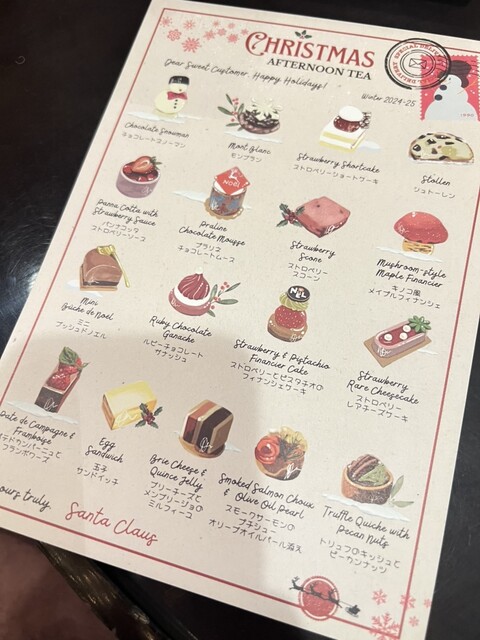 CHRISTMAS
AFTERNOON TEA
Dear Sweet Customer, Happy Holidays!
Winter 2024-25
SPECIAL DELIVERY
Chocolate Snowman
チョコレートスノーマン
Mont Blanc
モンブラン
Strawberry Shortcake
ストロベリーショートケーキ
Stollen
シュトーレン
Panna Cotta with
Strawberry Sauce
パンナコッタ
ストロベリーソース
NOËL
Praline
Chocolate Mousse
プラリネ
チョコレートムース
Strawberry
Scone
ストロベリー
スコーン
Mushroom-style
Maple Financier
キノコ風
メイプルフィナンシェ
Mini
Bûche de Noël
ミニ
ブッシュドノエル
Ruby Chocolate
Ganache
ルビーチョコレート
ガナッシュ
NOEL
Strawberry & Pistachio
Financier Cake
ストロベリーとピスタチオの
フィナンシェケーキ
Strawberry
Rare Cheesecake
ストロベリー
レアチーズケーキ
Pate de Campagne &
Framboise
パテドカンパーニュと
フランボワーズ
Egg
Sandwich
玉子
サンドイッチ
Brie Cheese &
Quince Jelly
ブリーチーズと
メンブリージョの
ミルフィーユ
Smoked Salmon Choux
& Olive Oil Pearl
スモークサーモンの
プチシュー
オリーブオイルパール添え
Truffle Quiche with
Pecan Nuts
トリュフのキッシュと
ピーカンナッツ
ours truly,
Santa Claus